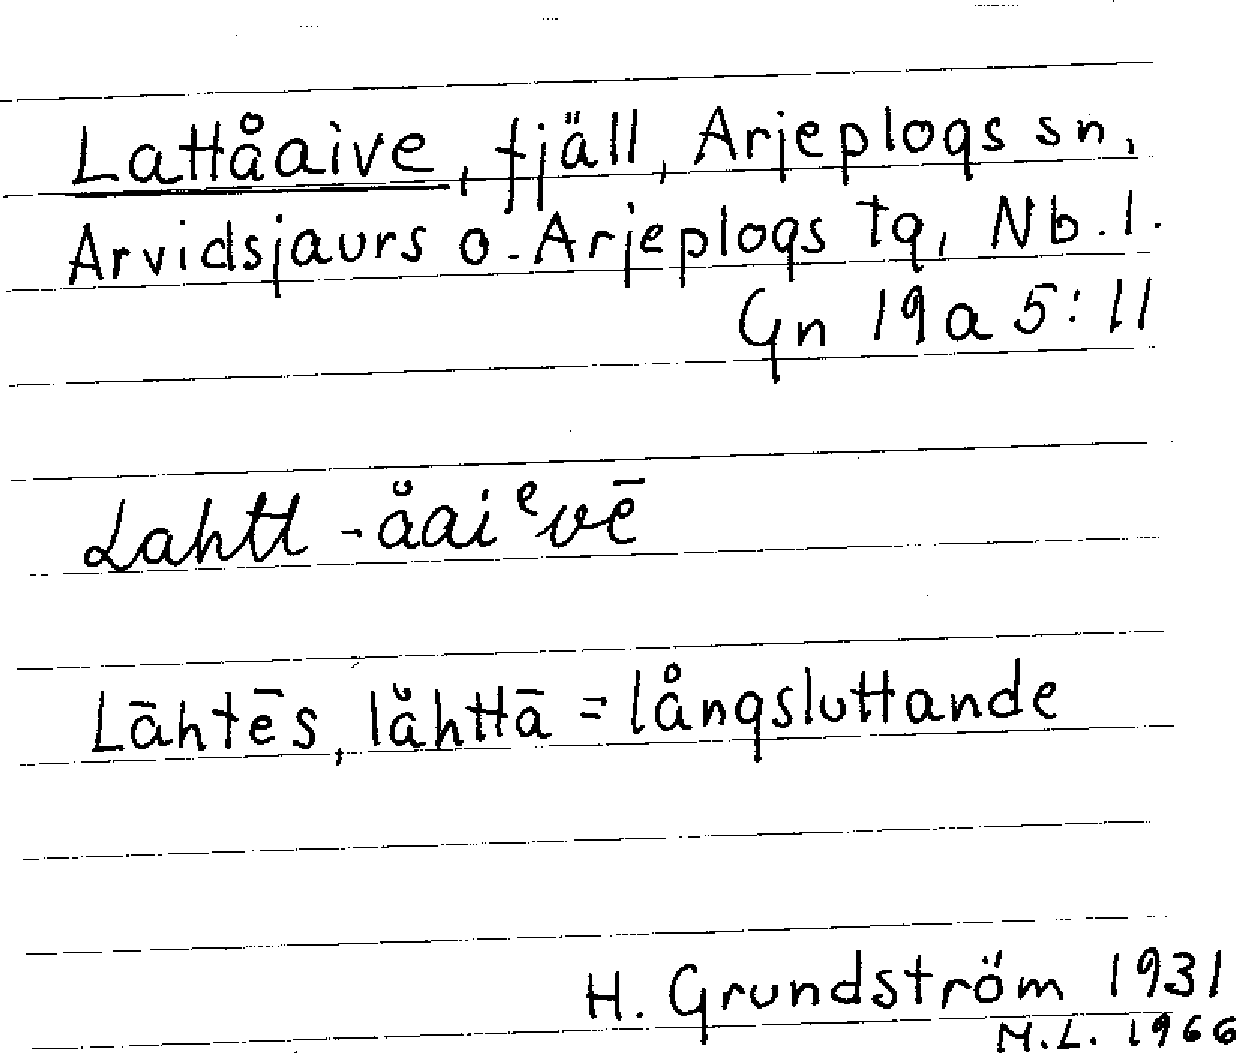 Lattåaive, fjäll, Arjeplogs sn,
Arvidsjaurs o. Arjeplogs tg, Nb. l.
Gn 19a 5:11
Lahtt-åaiᵉvē
Lāhtēs, lăhttā = långsluttande
H. Grundström 1931
M.L. 1966